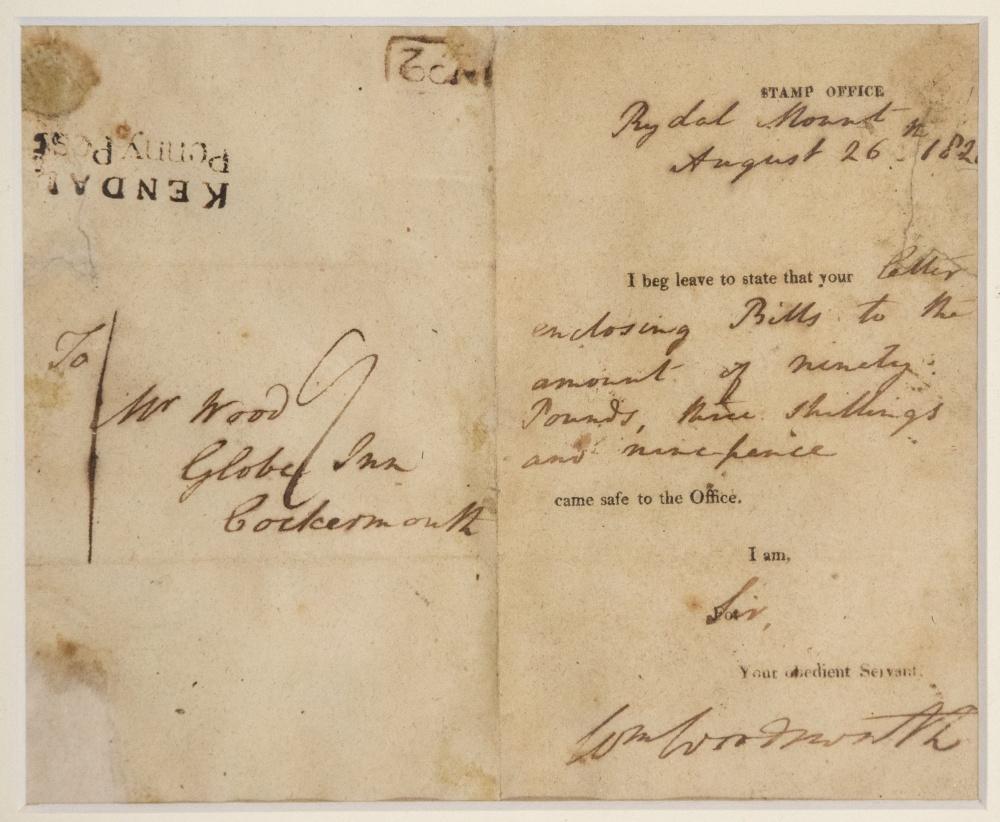 No 2
KENDAL
Penny Post
To
Mr Wood
Globe Inn
Cockermouth
STAMP OFFICE
Rydal Mount
August 26th 182
I beg leave to state that your letter
enclosing Bills to the
amount of ninety
Pounds, three shillings
and ninepence
came safe to the Office.
I am,
Sir,
For
Your obedient Servant,
Wm Wordsworth